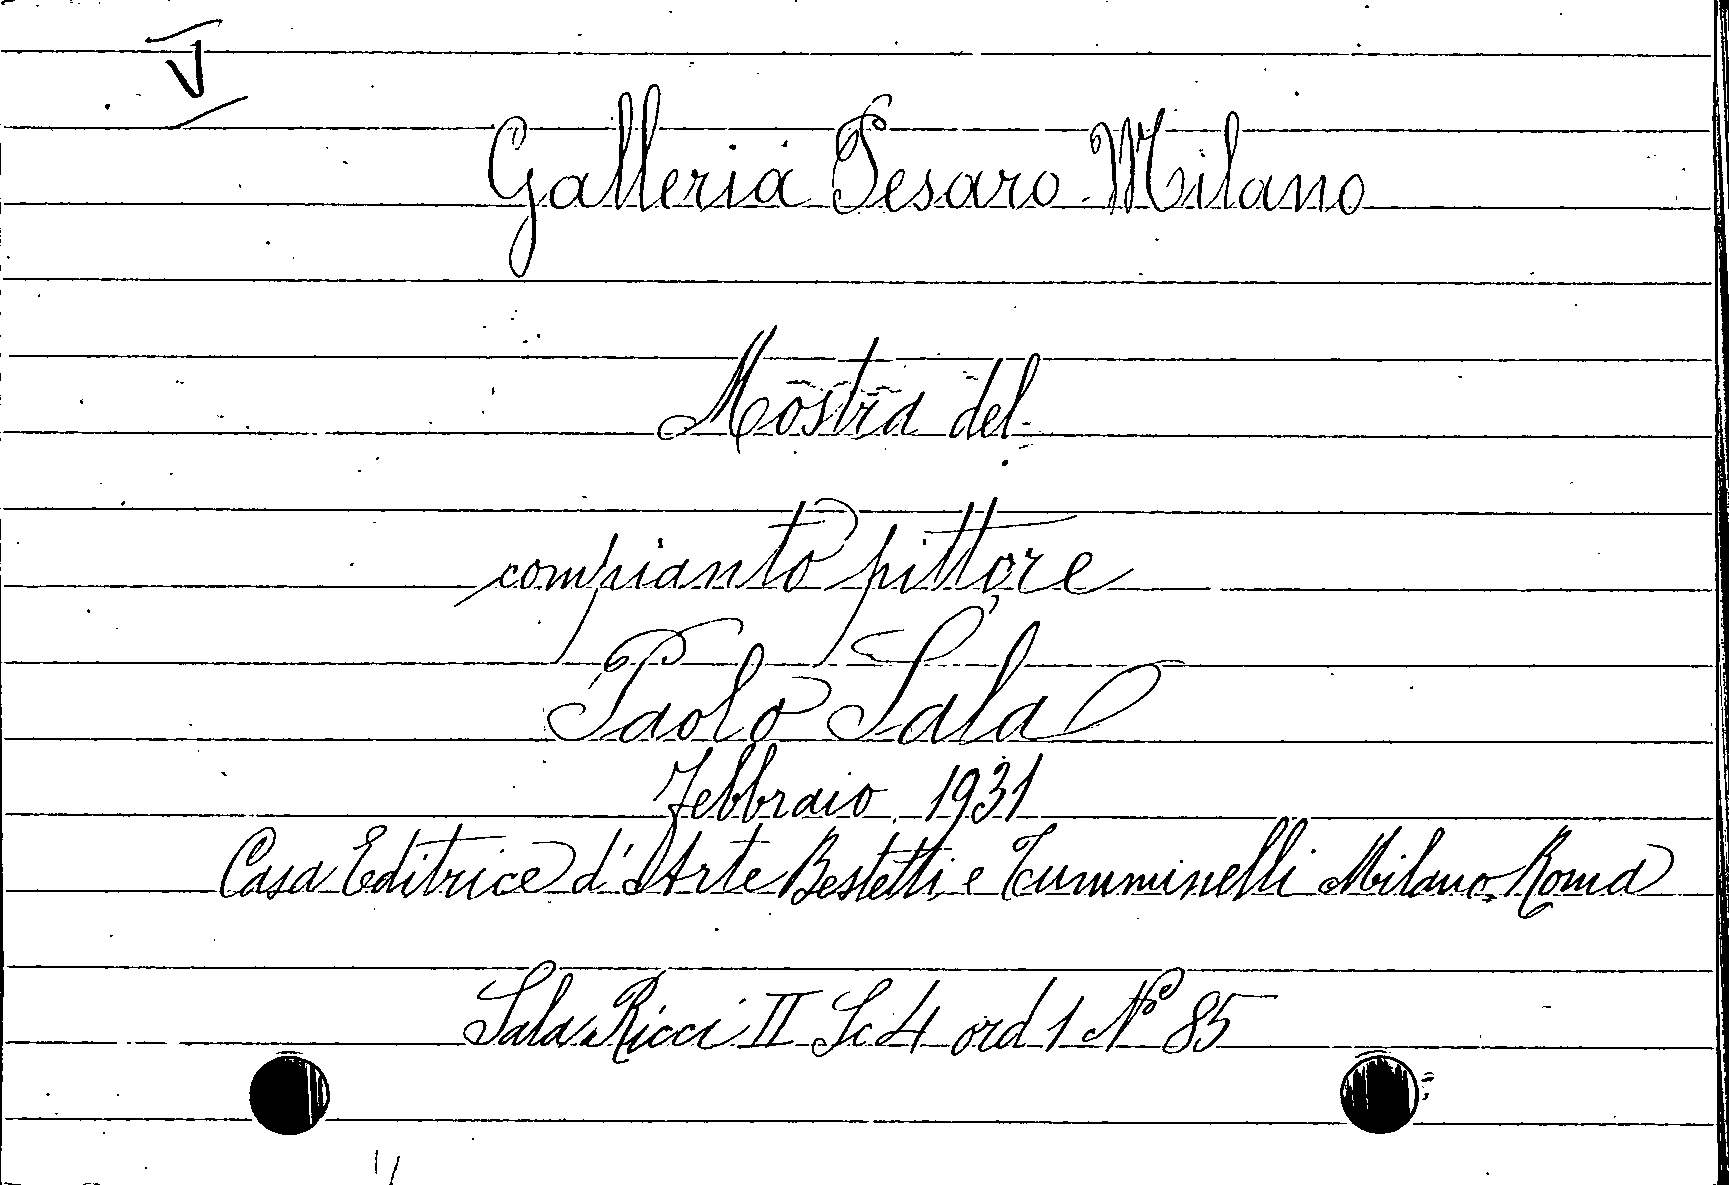 V
Galleria Pesaro - Milano
Mostra del
compianto pittore
Paolo Sala
Febbraio 1931
Casa Editrice d'Arte Bestetti e Tumminelli Milano-Roma
Sala Ricci II Sc 4 ord 1 N° 85